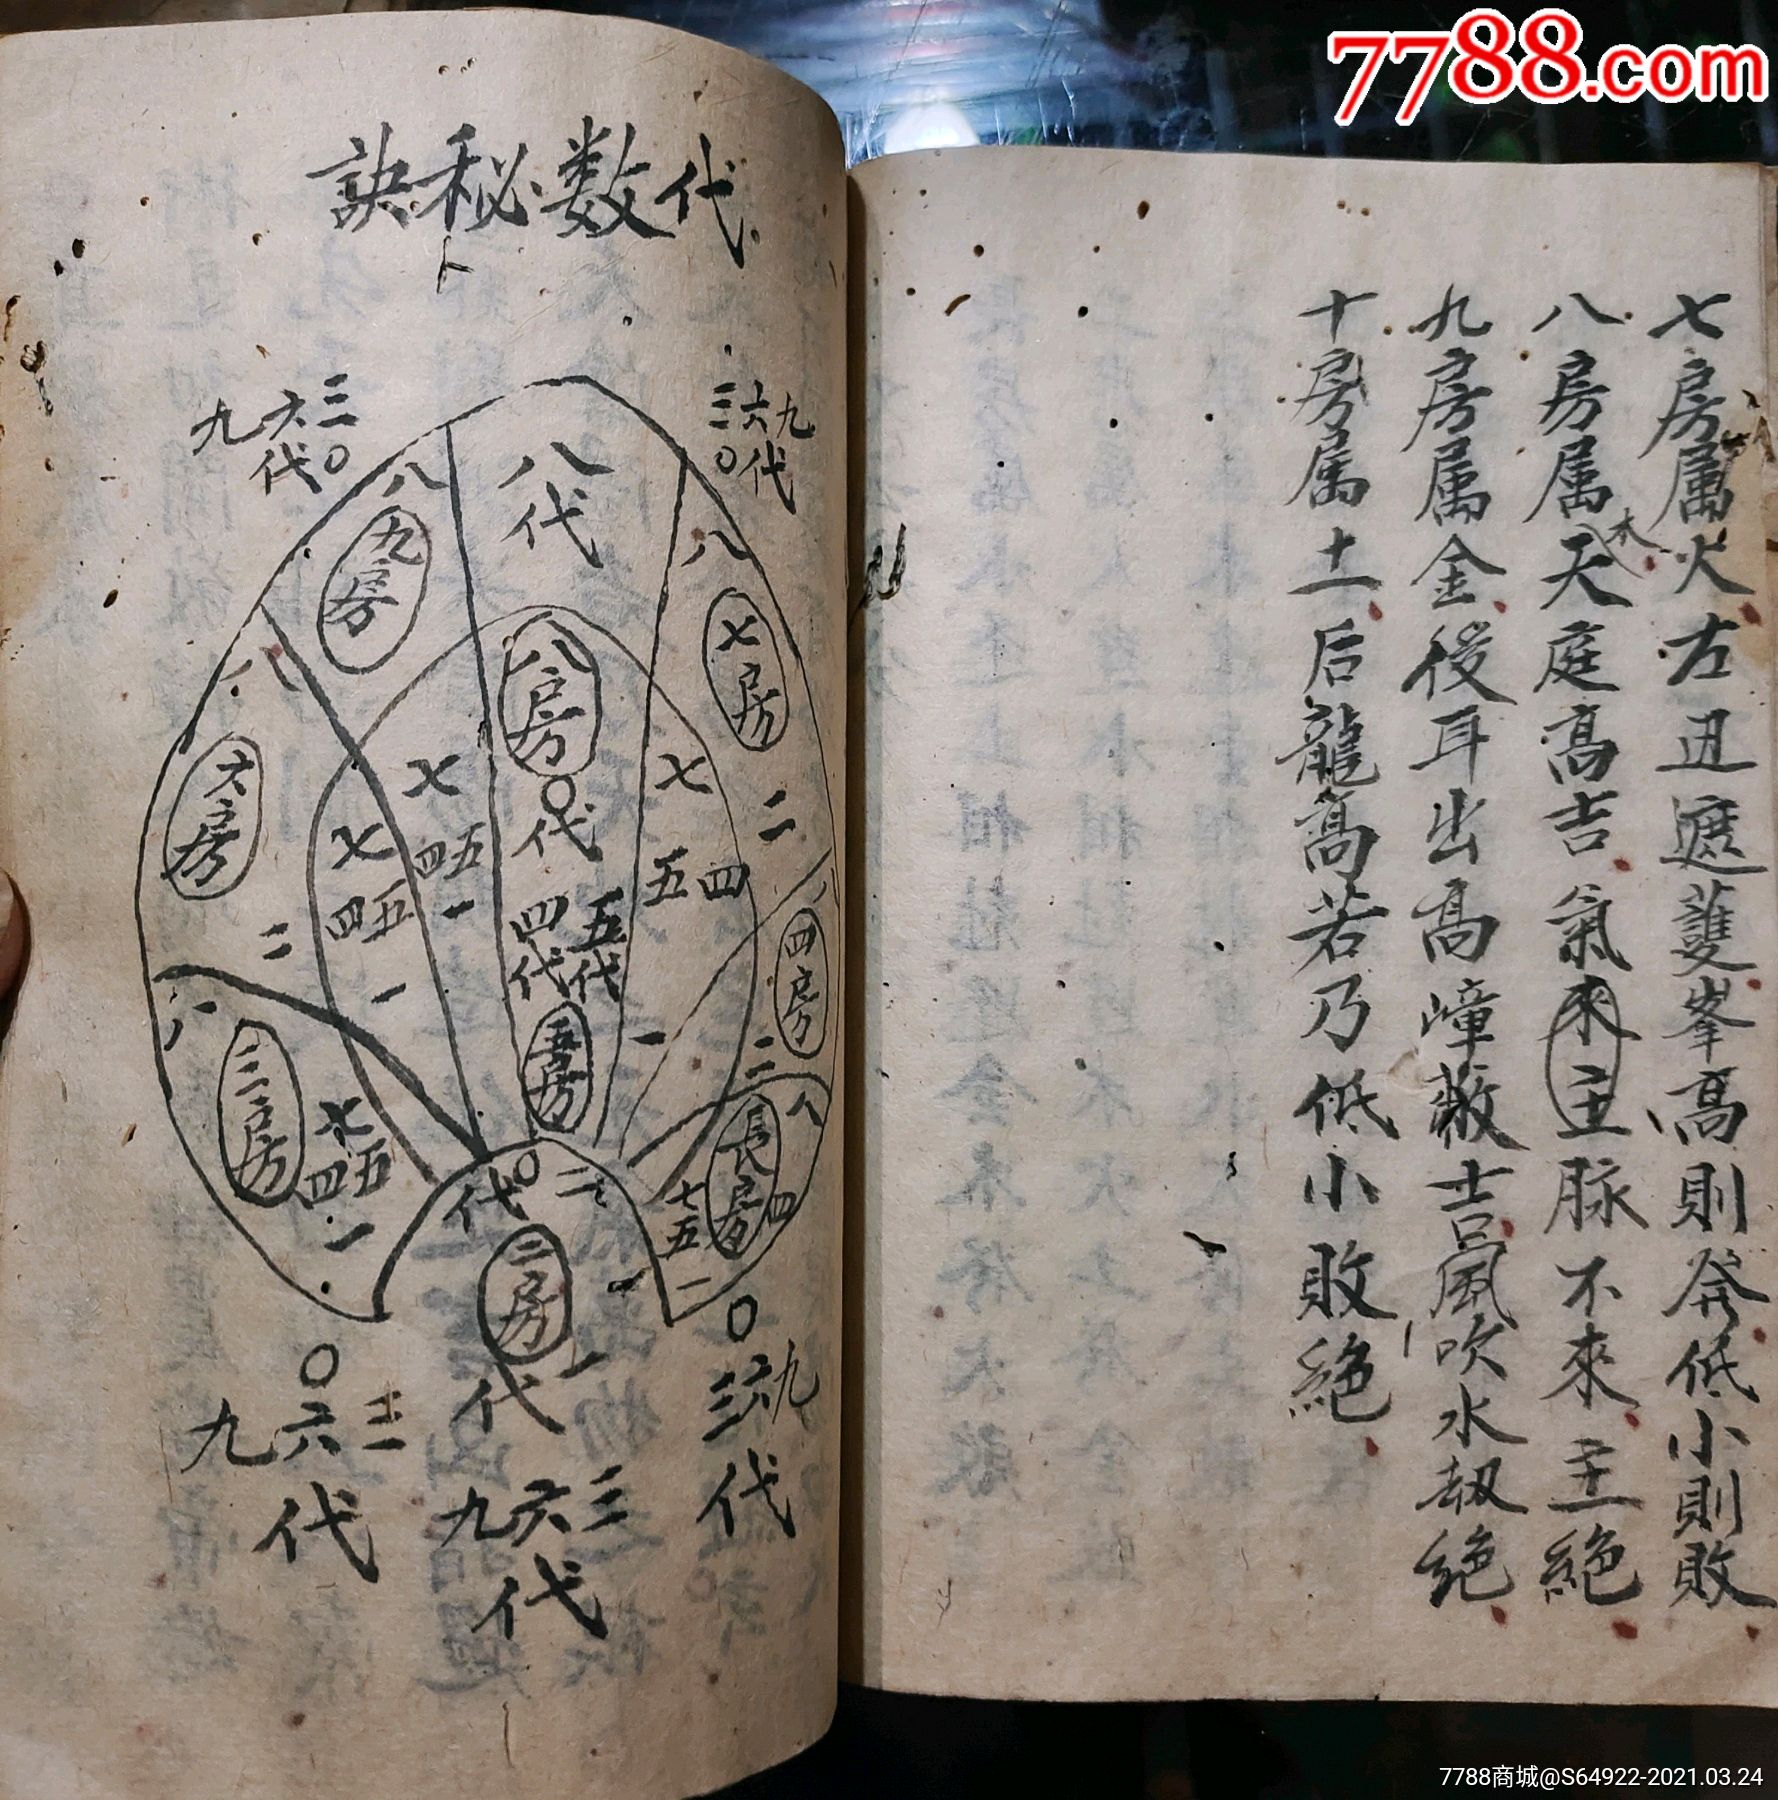 7788.com
七房属火右丑遮護峯高則發低小則敗
八房属天木庭高吉氣來主脉不來主絕
九房属金後耳出高嶂蔽吉風吹水刼絕
十房属土后龍高若乃低小敗絕
代数秘訣
九六三
代〇
三六九
〇代
八
八代
八
九房
七房
八
八房
六房
七
七
〇代
二
七
四五
五四
四五
一
四代
五代
四房
二
一
五房
一
二
八
三房
長房
八
七
四五
一
代〇二
七五
四
一
二房
一
代
〇
九六三
代
九六三
代
〇
三六九
代
7788商城@S64922-2021.03.24